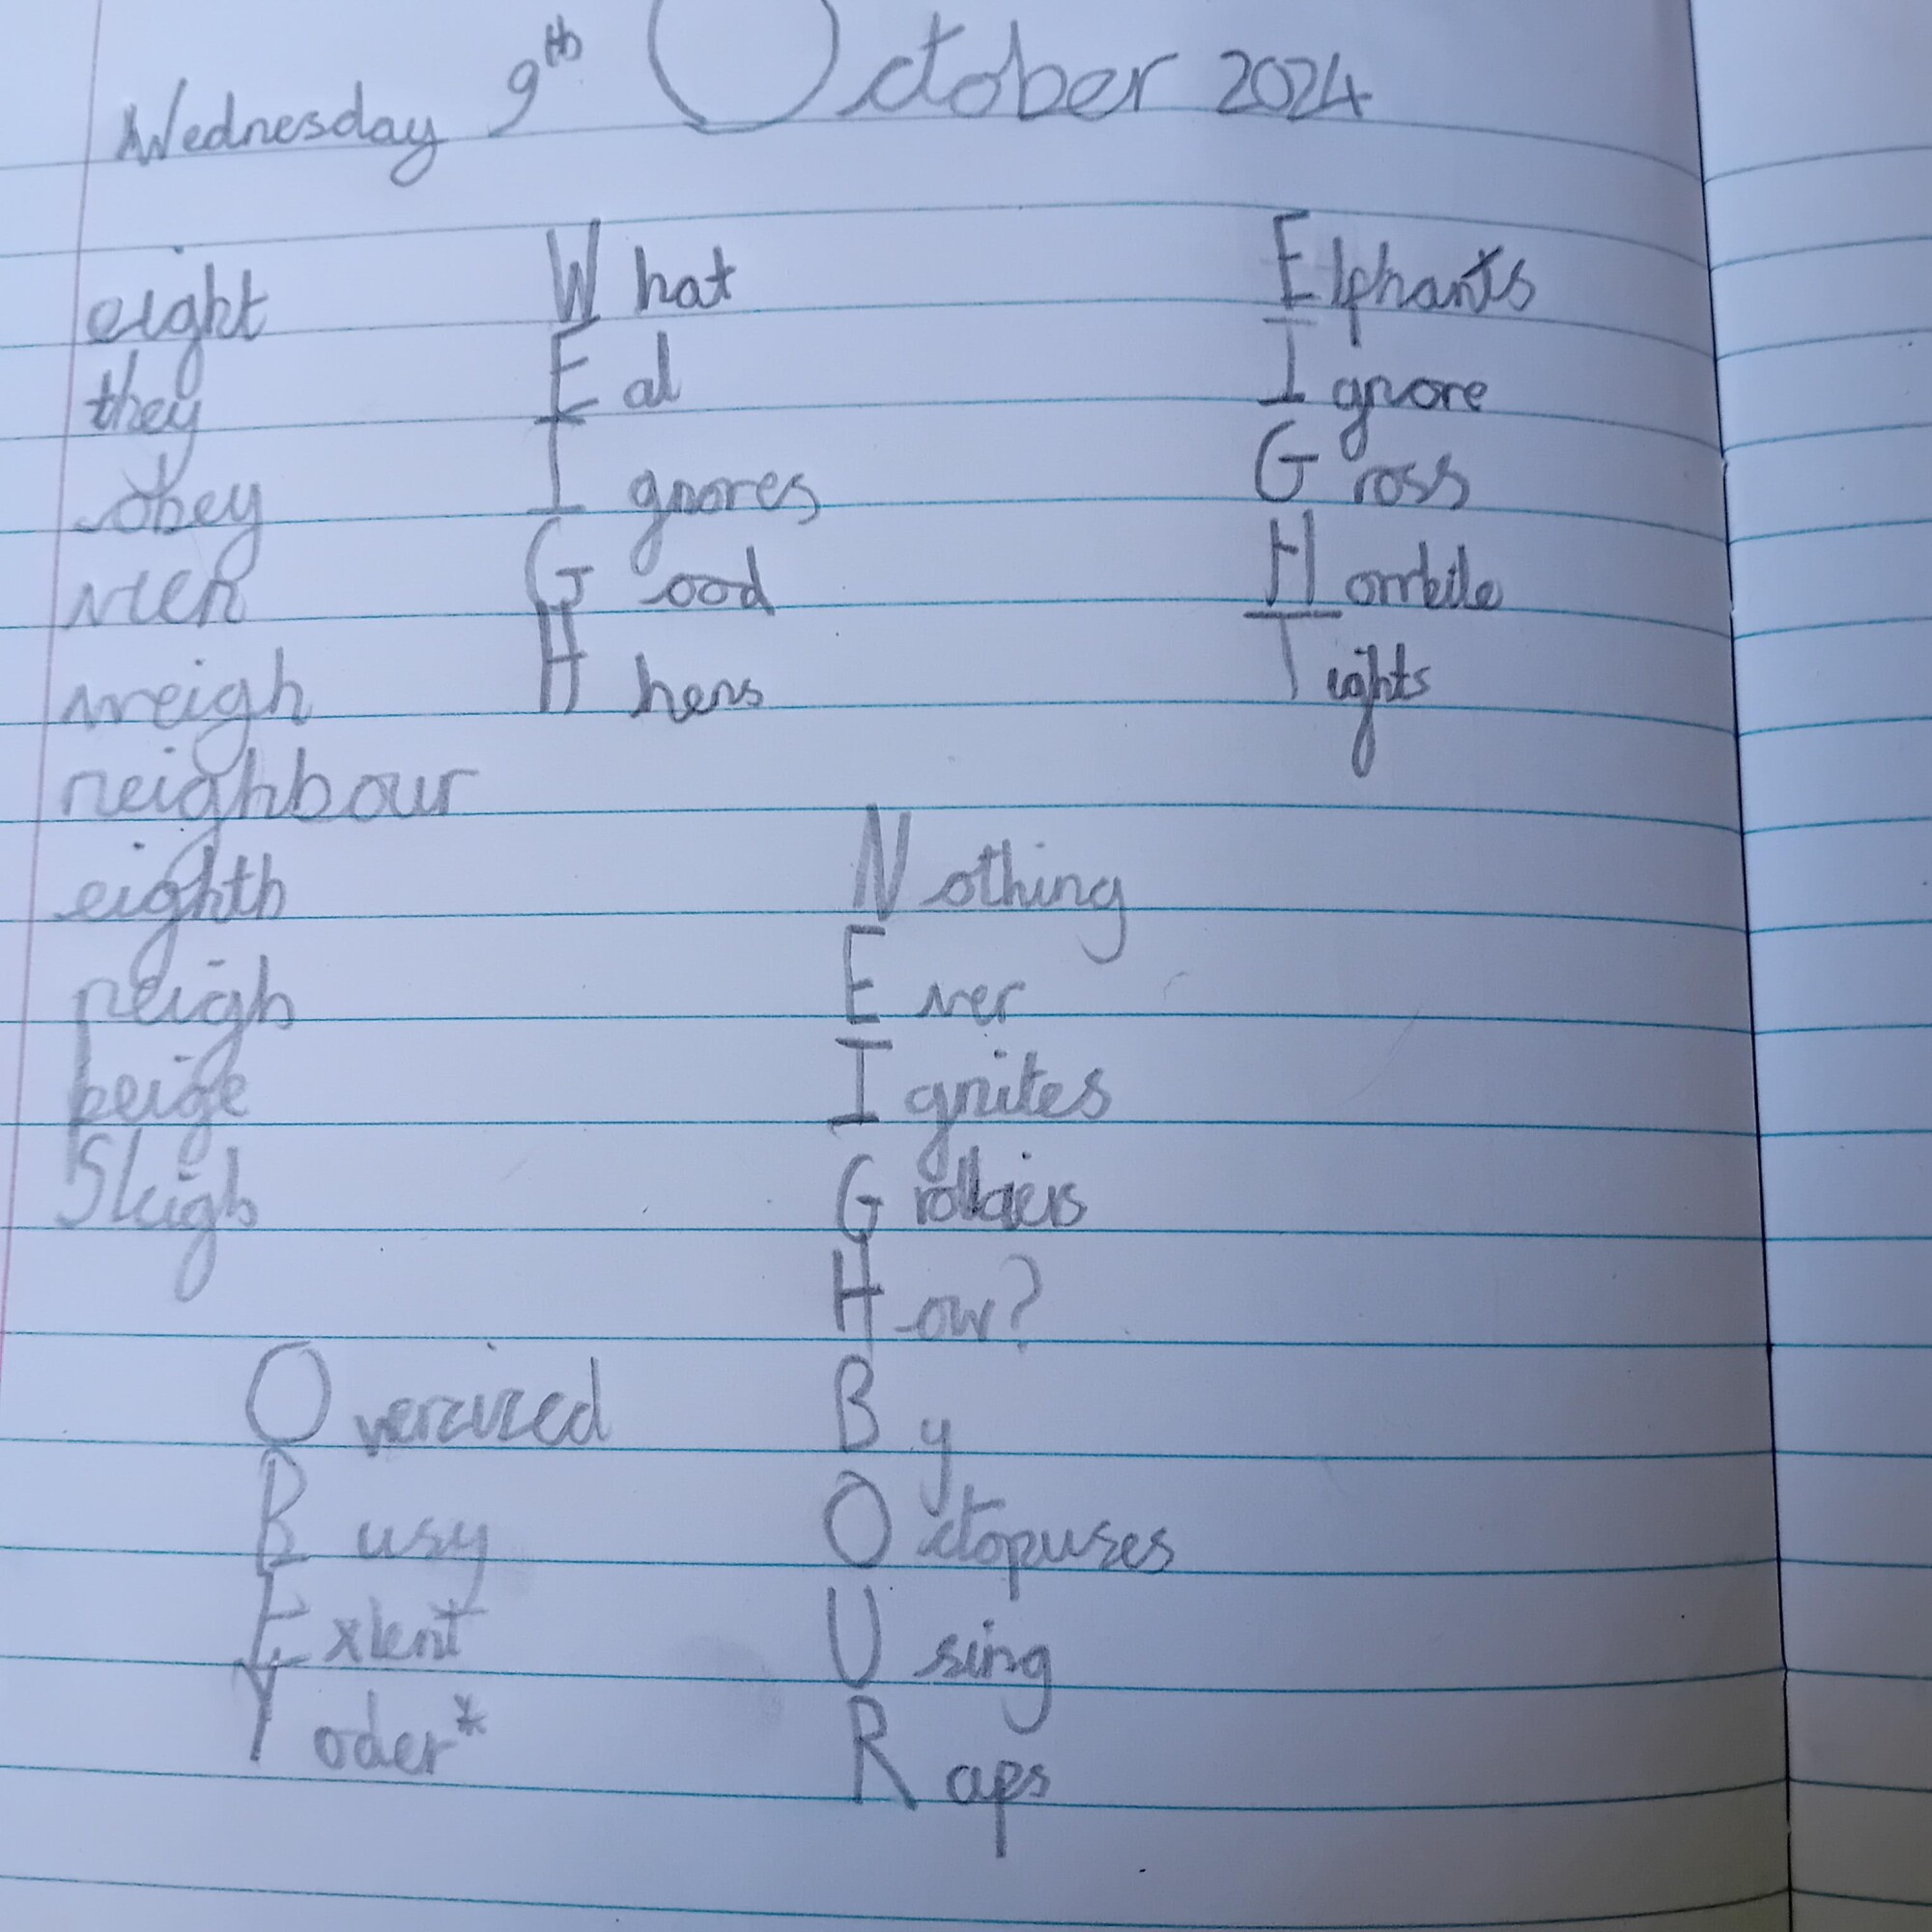 Wednesday 9th October 2024
eight
they
obey
vein
weigh
neighbour
eighth
neigh
beige
Sleigh
What
Eal
Ignores
Good
H hens
Elphants
Ignore
Gross
Horrbile
Tights
Nothing
Ever
Ignites
How?
By
Octopuses
Using
Raps
Overzized
Busy
Exlent
Yoder*